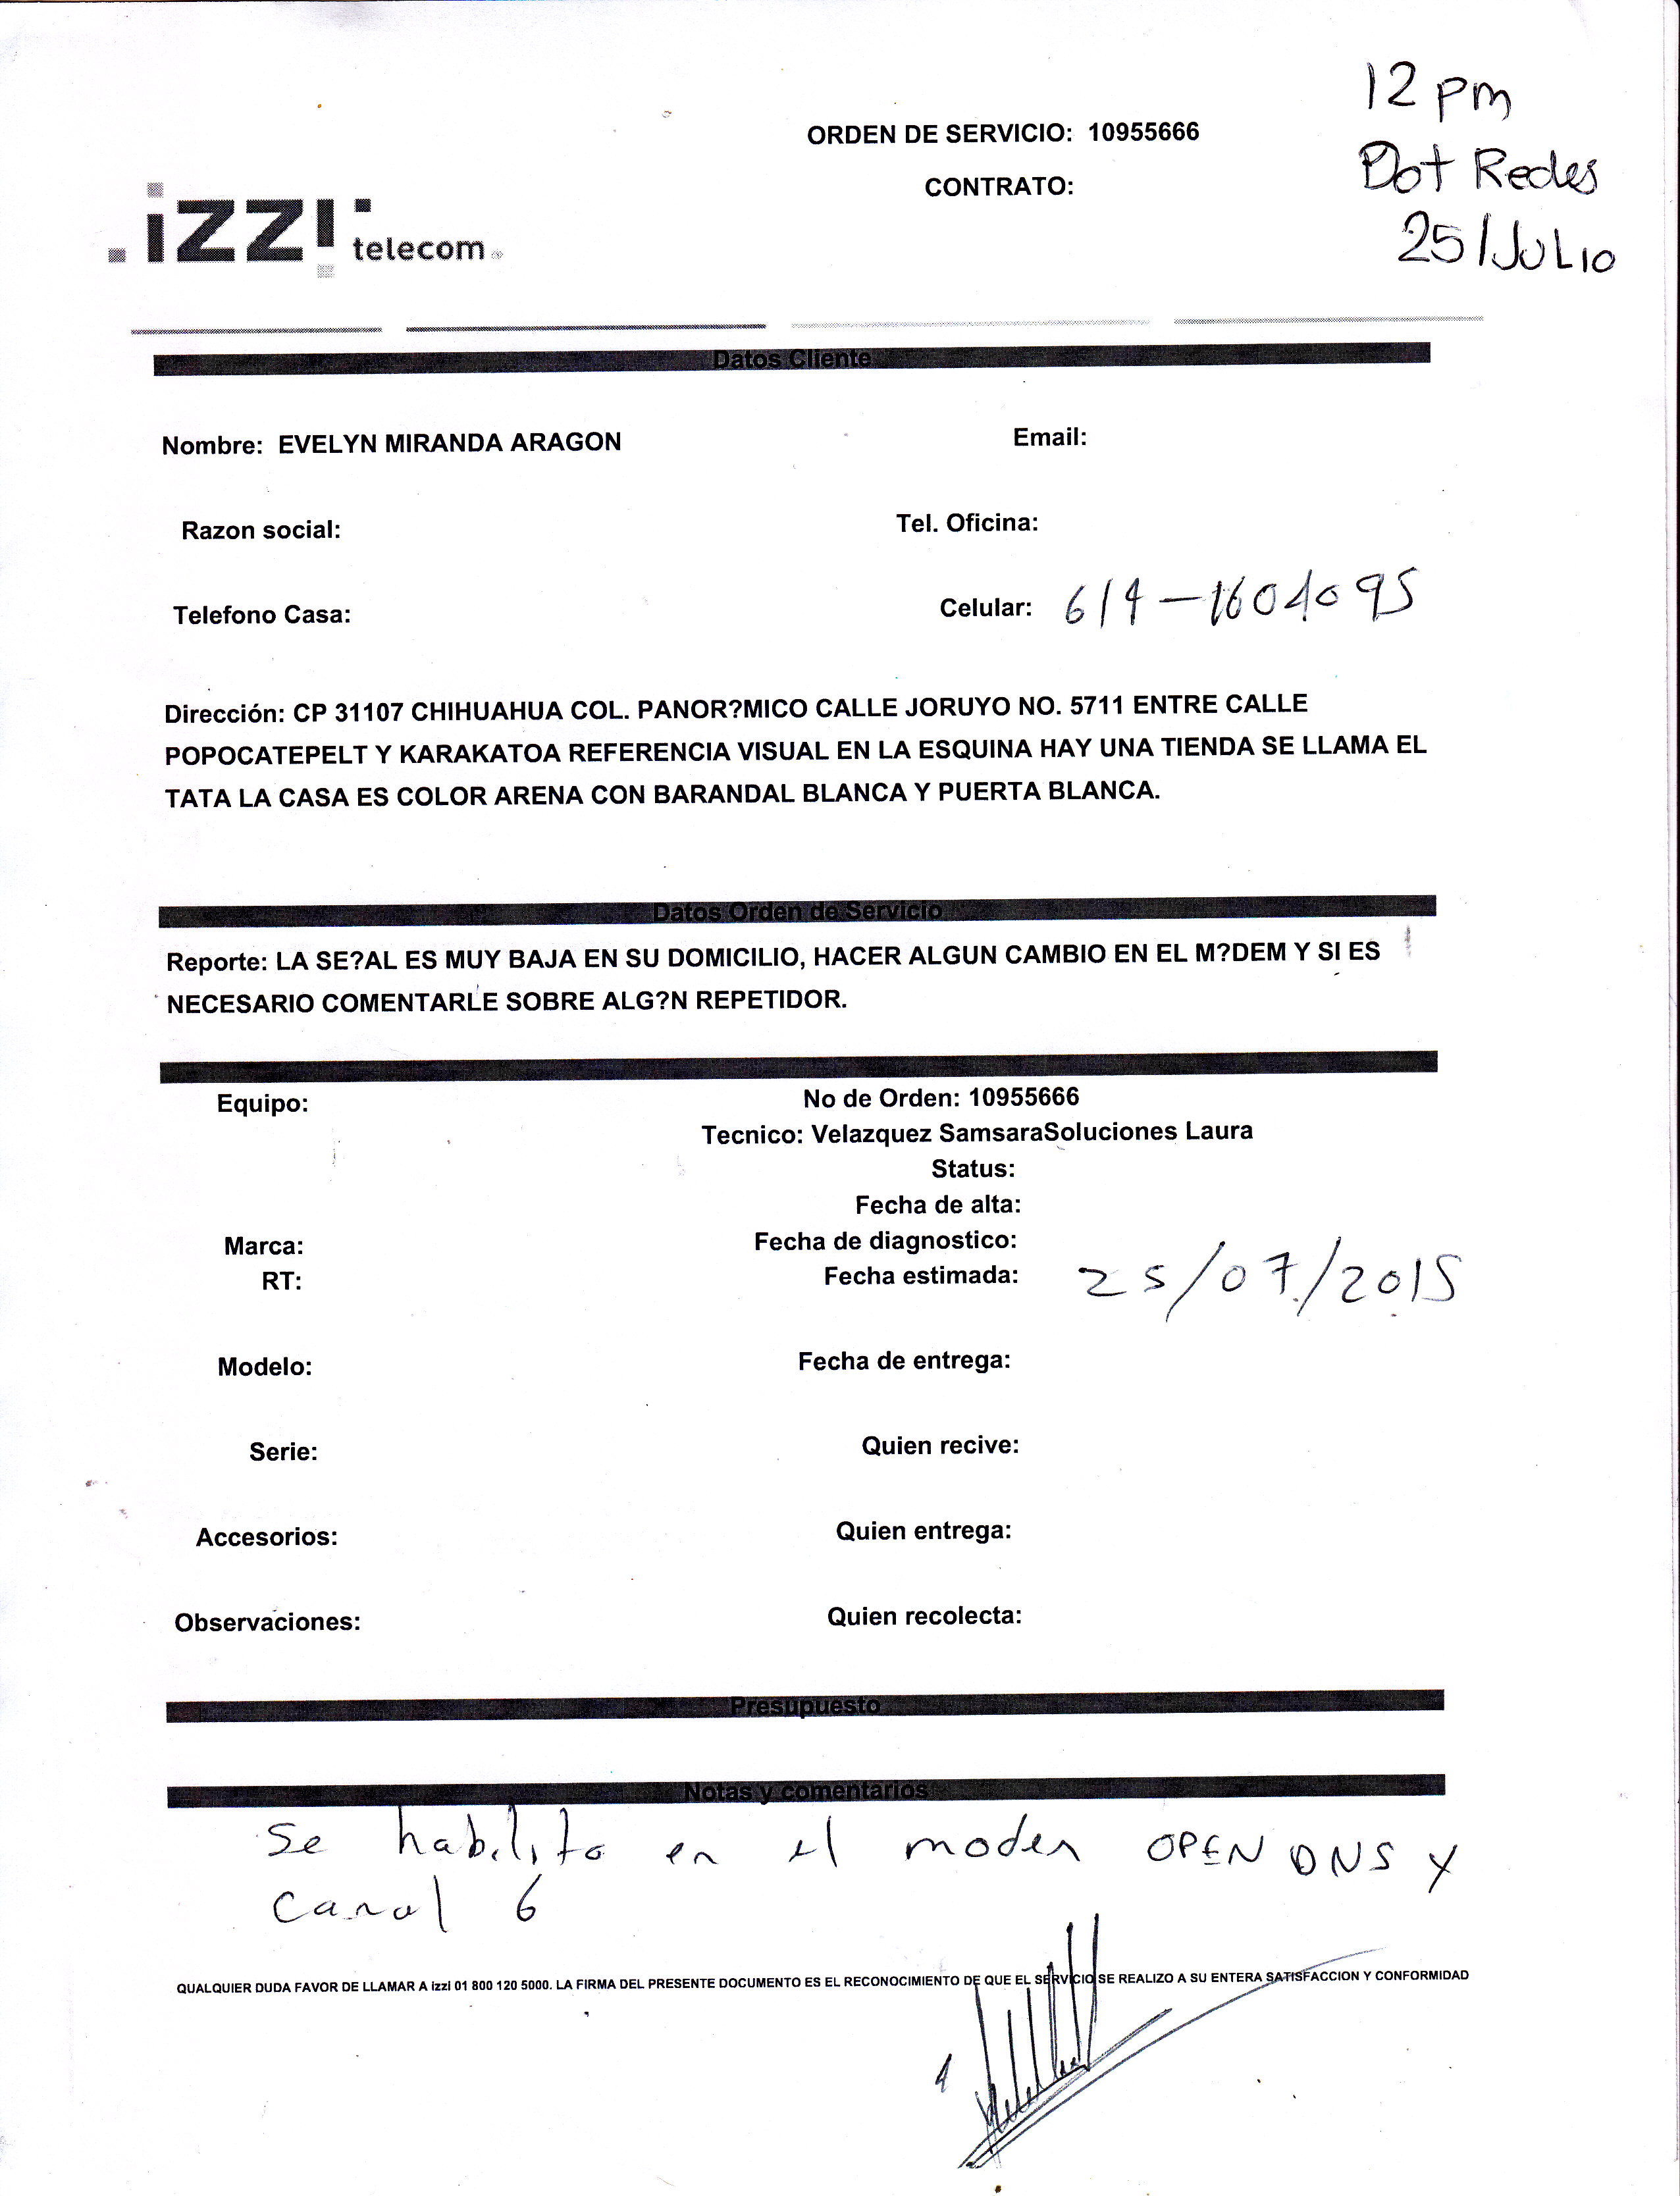 12 pm
Dot Redes
25/JULIO
ORDEN DE SERVICIO: 10955666
CONTRATO:
izzi telecom
Datos Cliente
Nombre: EVELYN MIRANDA ARAGON
Email:
Razon social:
Tel. Oficina:
Telefono Casa:
Celular: 614-1604095
Dirección: CP 31107 CHIHUAHUA COL. PANOR?MICO CALLE JORUYO NO. 5711 ENTRE CALLE
POPOCATEPELT Y KARAKATOA REFERENCIA VISUAL EN LA ESQUINA HAY UNA TIENDA SE LLAMA EL
TATA LA CASA ES COLOR ARENA CON BARANDAL BLANCA Y PUERTA BLANCA.
Datos Orden de Servicio
Reporte: LA SE?AL ES MUY BAJA EN SU DOMICILIO, HACER ALGUN CAMBIO EN EL M?DEM Y SI ES
NECESARIO COMENTARLE SOBRE ALG?N REPETIDOR.
Equipo:
No de Orden: 10955666
Tecnico: Velazquez SamsaraSoluciones Laura
Status:
Fecha de alta:
Marca:
Fecha de diagnostico:
RT:
Fecha estimada: 25/07/2015
Modelo:
Fecha de entrega:
Serie:
Quien recive:
Accesorios:
Quien entrega:
Observaciones:
Quien recolecta:
Presupuesto
Notas y comentarios
Se habilito en el modem OPEN DNS Y
Canal 6
QUALQUIER DUDA FAVOR DE LLAMAR A izzi 01 800 120 5000. LA FIRMA DEL PRESENTE DOCUMENTO ES EL RECONOCIMIENTO DE QUE EL SERVICIO SE REALIZO A SU ENTERA SATISFACCION Y CONFORMIDAD